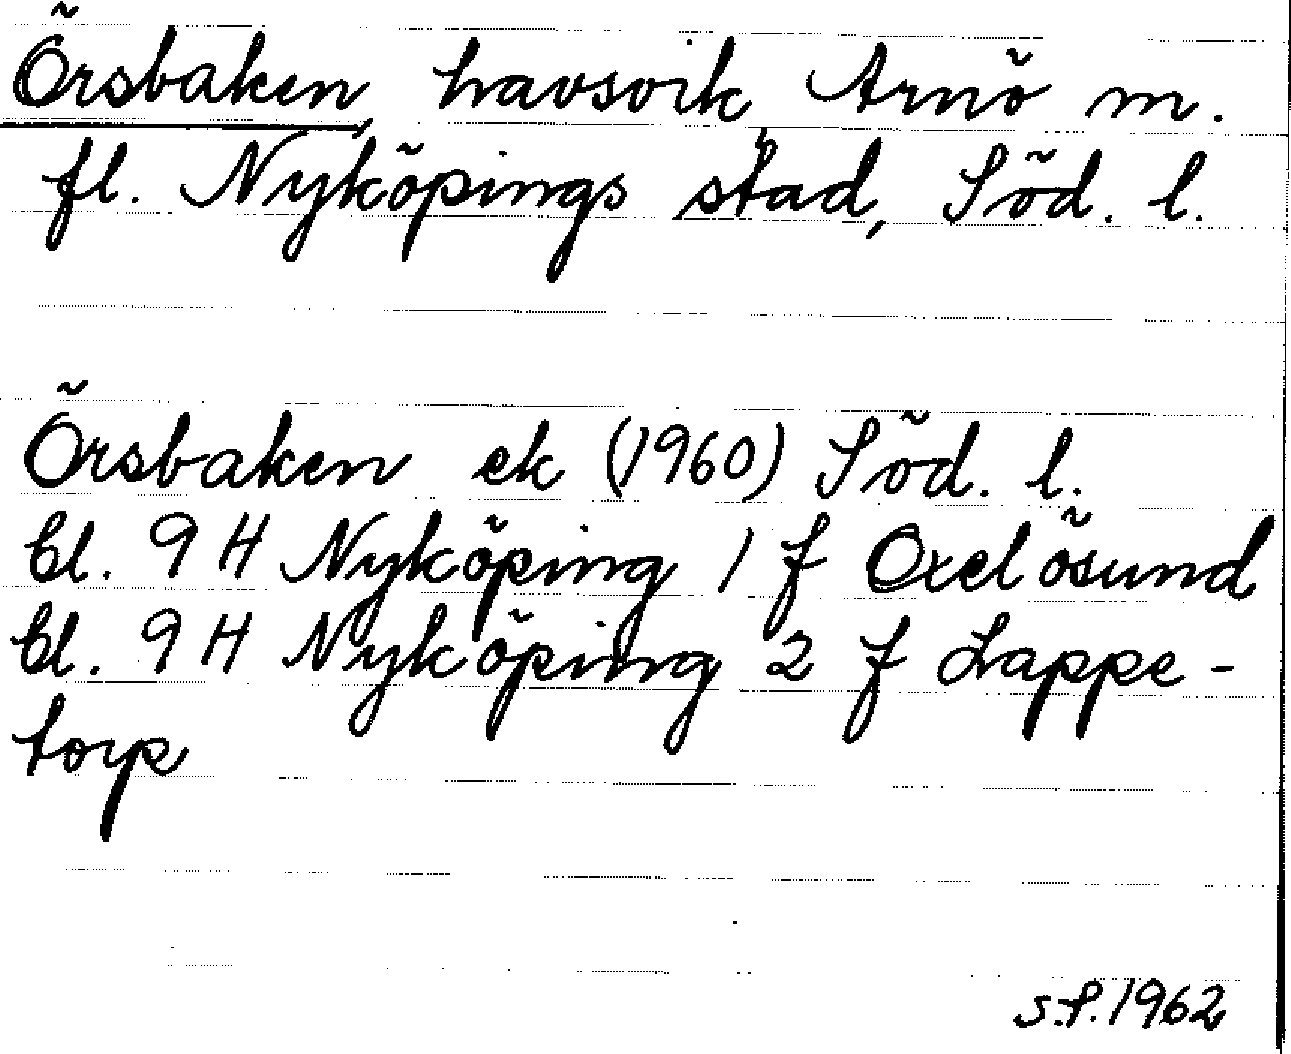 Örsbaken, havsvik, Arnö m.
fl. Nyköpings stad, Söd. l.
Örsbaken ek (1960) Söd. l.
bl. 9 H Nyköping 1 f Oxelösund
bl. 9 H Nyköping 2 f Lappe-
torp
S.P. 1962